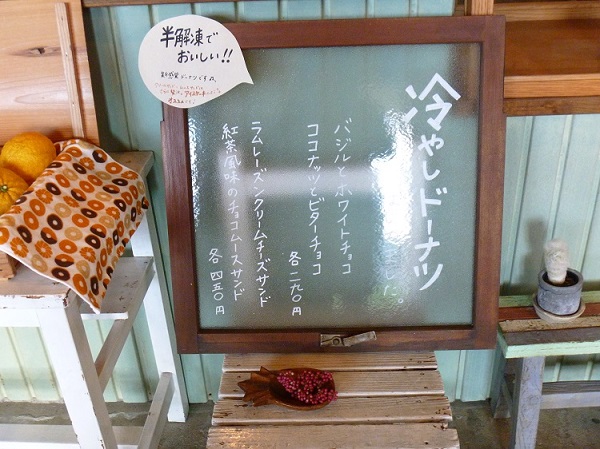 半解凍で
おいしい!!
冷やしドーナツ
した。
バジルとホワイトチョコ
ココナッツとビターチョコ
各 二九〇円
ラムレーズンクリームチーズサンド
紅茶風味のチョコムースサンド
各 四五〇円